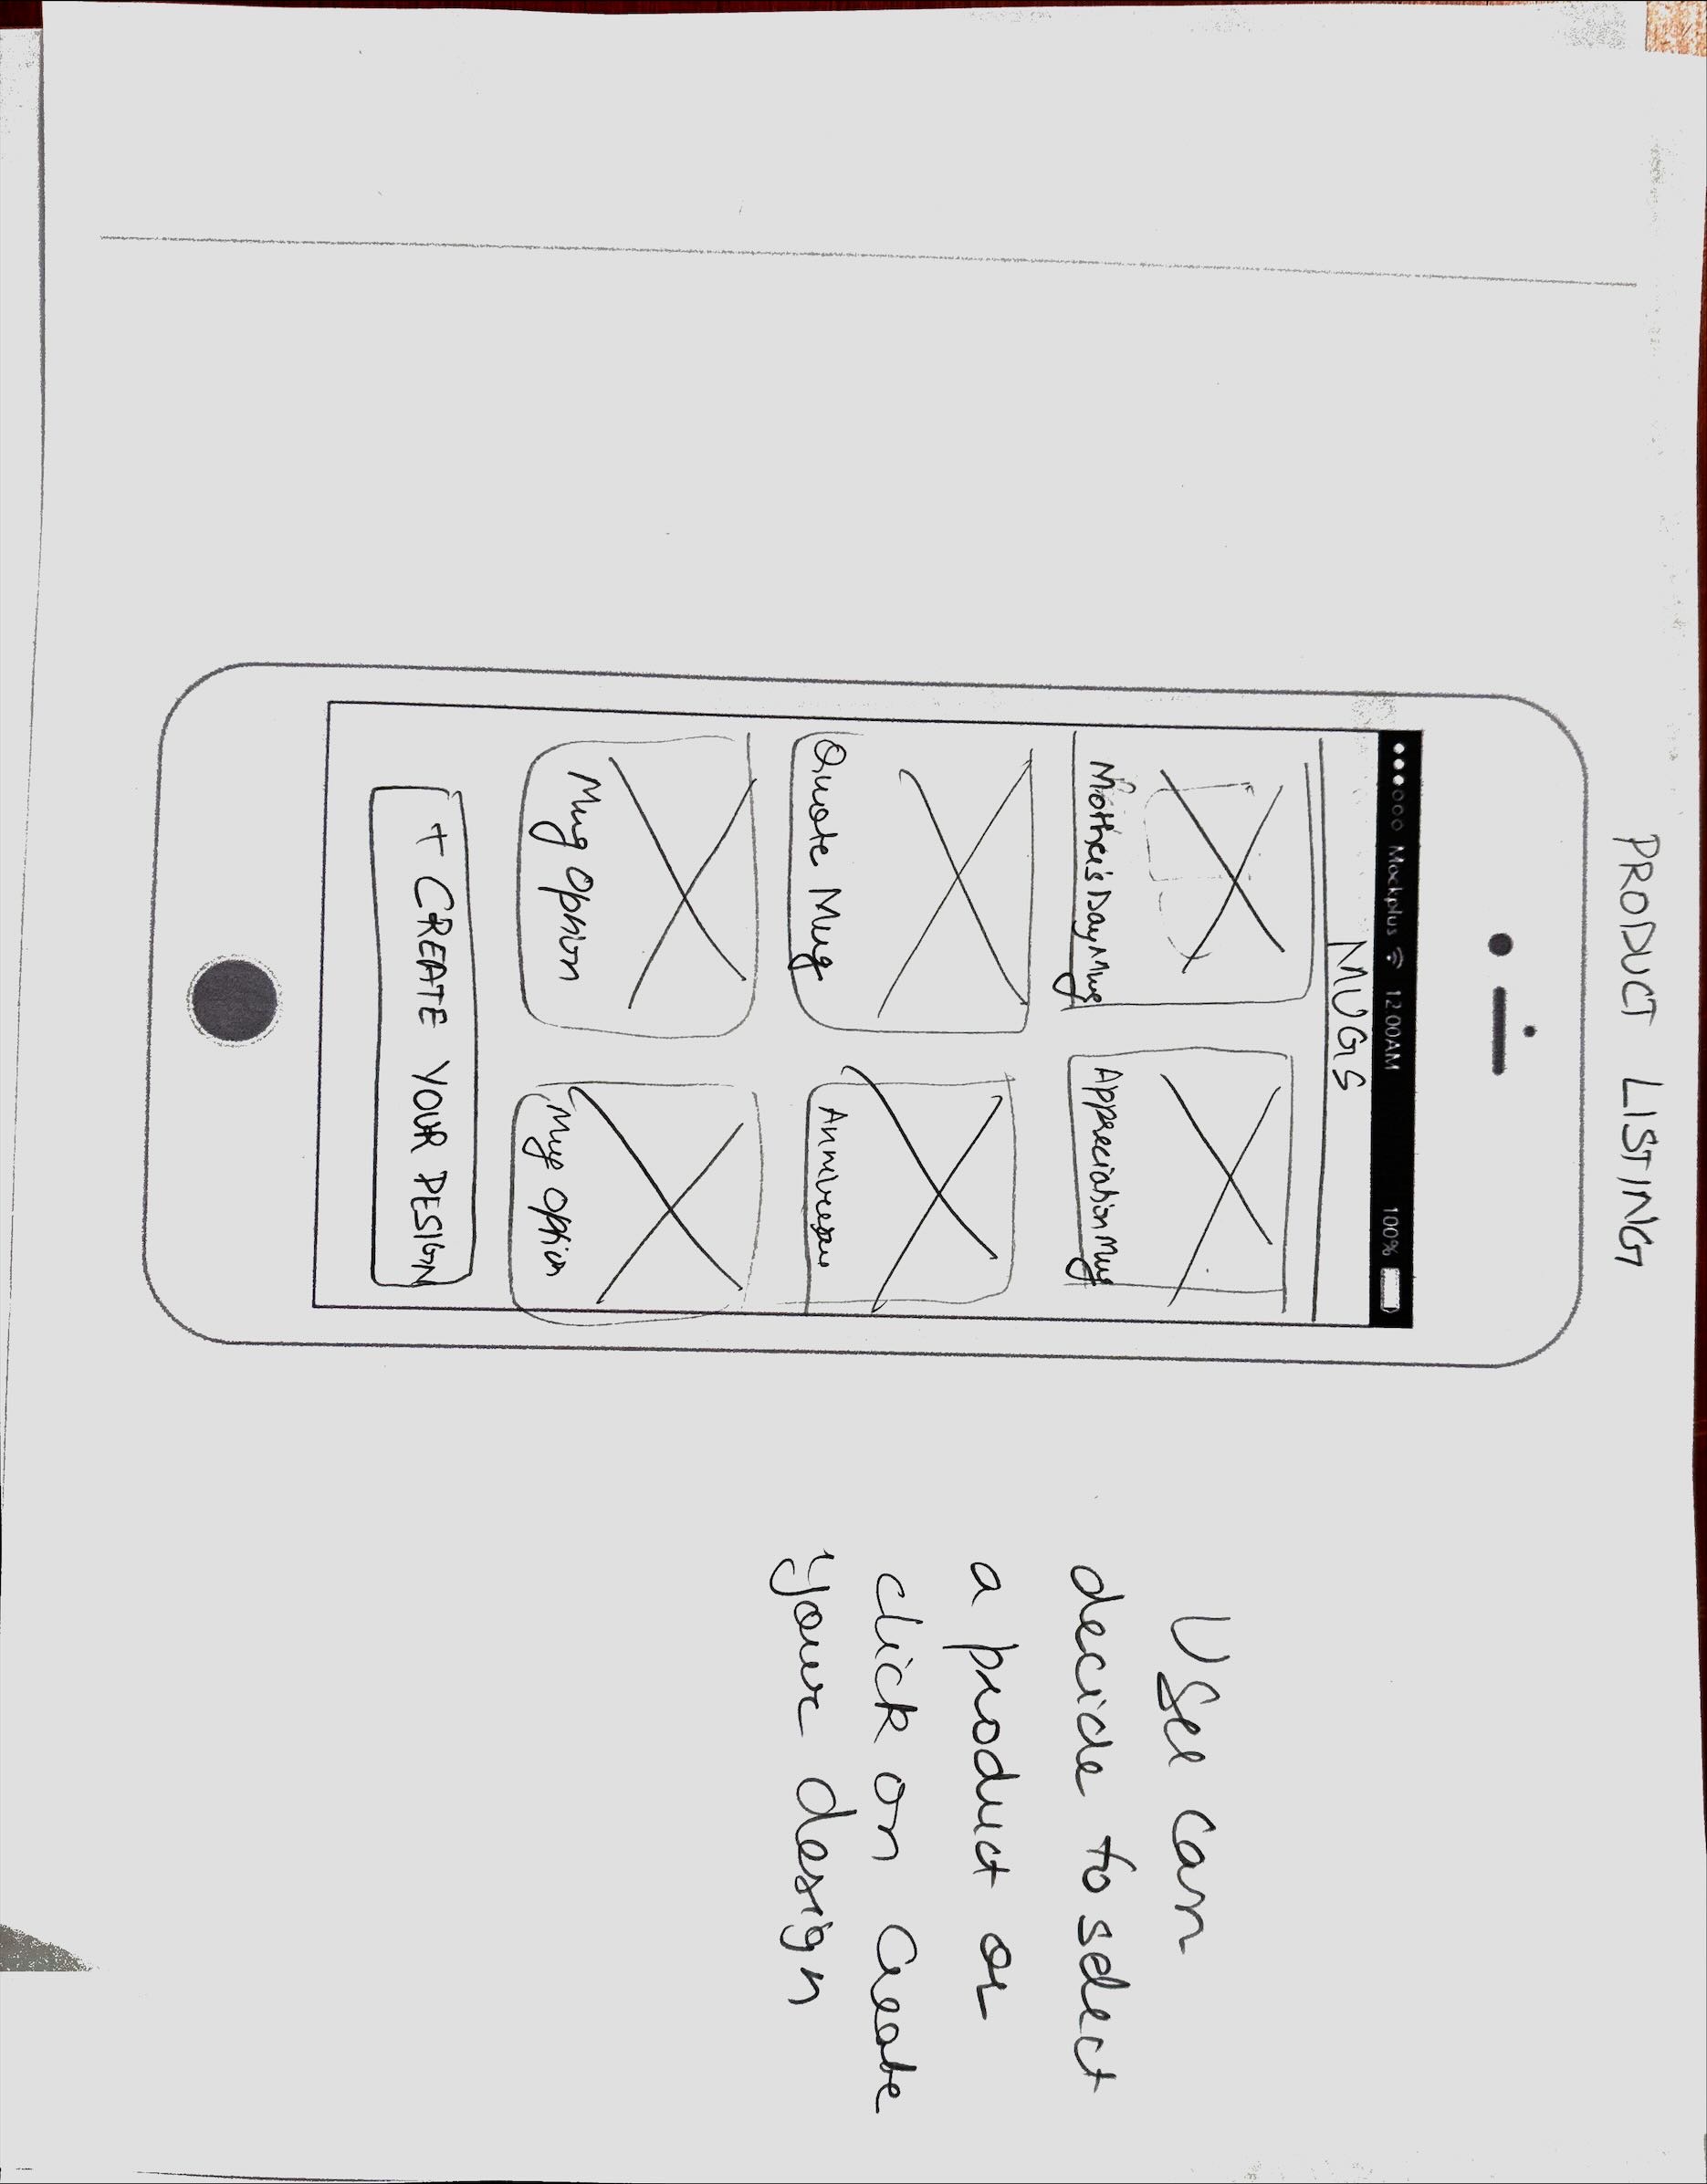 PRODUCT LISTING
Mockplus 12:00AM 100%
MUGS
Mother's Day Mug Appreciation Mug
Quote Mug
Mug Option Mug Option
+ CREATE YOUR DESIGN
User can
decide to select
a product or
click on Create
your design